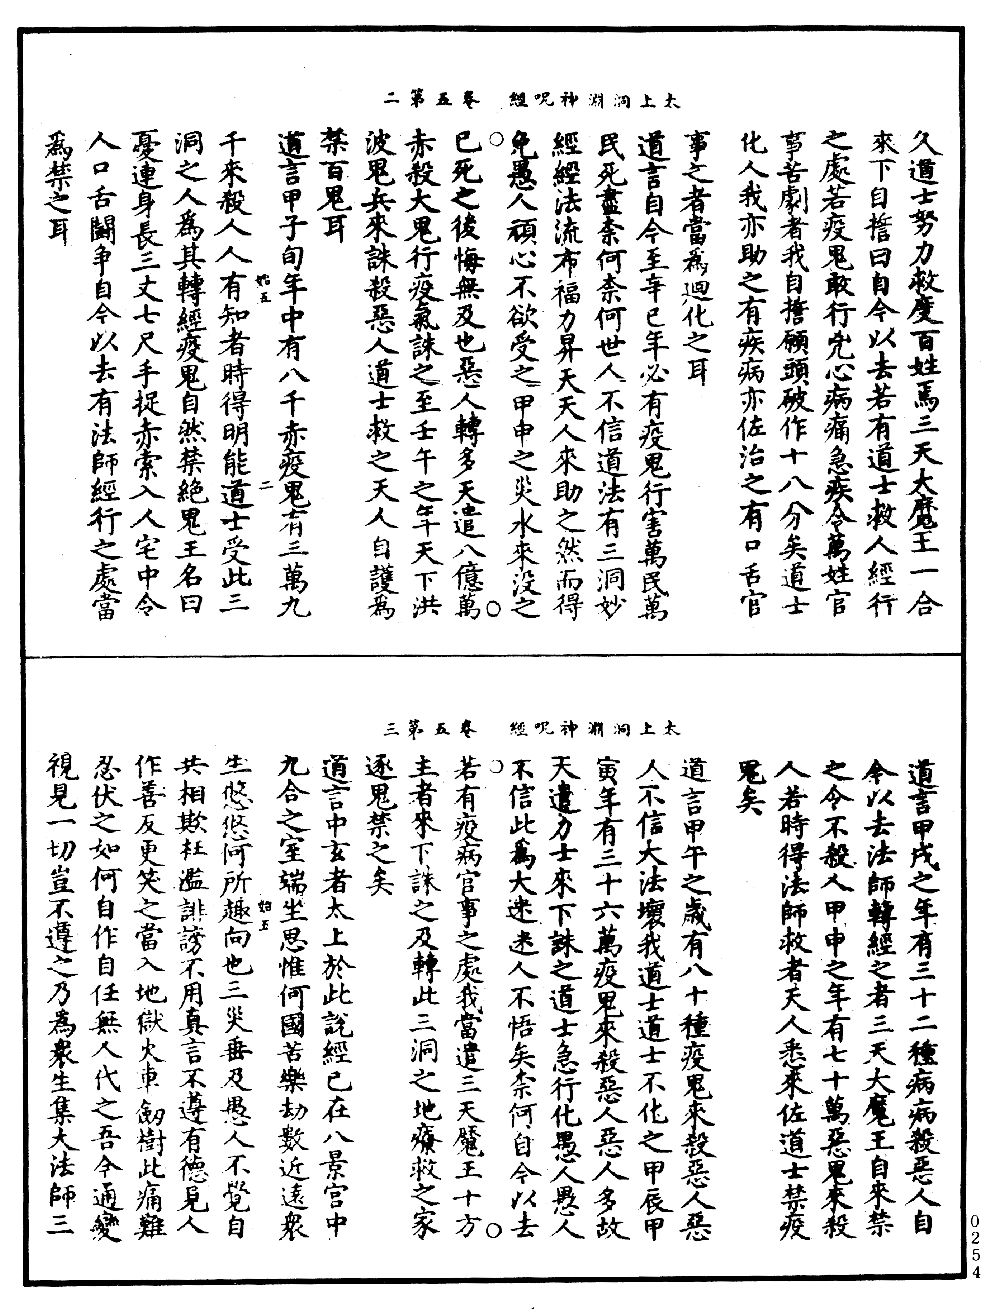 太上洞淵神呪經　卷五第二
久道士努力救度百姓焉三天大魔王一合
來下自誓曰自今以去若有道士救人經行
之處若疫鬼敢行兇心病痛急疾令萬姓官
事苦劇者我自誓願頭破作十八分矣道士
化人我亦助之有疾病亦佐治之有口舌官
事之者當爲迴化之耳
道言自今至辛巳年必有疫鬼行害萬民萬
民死盡柰何柰何世人不信道法有三洞妙
經經法流布福力昇天天人來助之然而得
免愚人頑心不欲受之甲申之災水來没之
已死之後悔無及也惡人轉多天遣八億萬
赤殺大鬼行疫氣誅之至壬午之年天下洪
波鬼兵來誅殺惡人道士救之天人自護爲
禁百鬼耳
道言甲子旬年中有八千赤疫鬼有三萬九
始五　二
千來殺人人有知者時得明能道士受此三
洞之人爲其轉經疫鬼自然禁絶鬼王名曰
憂連身長三丈七尺手捉赤索入人宅中令
人口舌鬭争自今以去有法師經行之處當
爲禁之耳
太上洞淵神呪經　卷五第三
道言甲戌之年有三十二種病病殺惡人自
今以去法師轉經之者三天大魔王自來禁
之令不殺人甲申之年有七十萬惡鬼來殺
人若時得法師救者天人悉來佐道士禁疫
鬼矣
道言甲午之歲有八十種疫鬼來殺惡人惡
人不信大法壞我道士道士不化之甲辰甲
寅年有三十六萬疫鬼來殺惡人惡人多故
天遣力士來下誅之道士急行化愚人愚人
不信此爲大迷迷人不悟矣柰何自今以去
若有疫病官事之處我當遣三天魔王十方
主者來下誅之及轉此三洞之地療救之家
逐鬼禁之矣
道言中玄者太上於此說經已在八景宫中
九合之室端坐思惟何國苦樂劫數近遠衆
始五
生悠悠何所趣向也三災垂及愚人不覺自
共相欺枉濫誹謗不用真言不遵有德見人
作善反更笑之當入地獄火車劔樹此痛難
忍伏之如何自作自任無人代之吾今通變
視見一切豈不遵之乃爲衆生集大法師三
0254